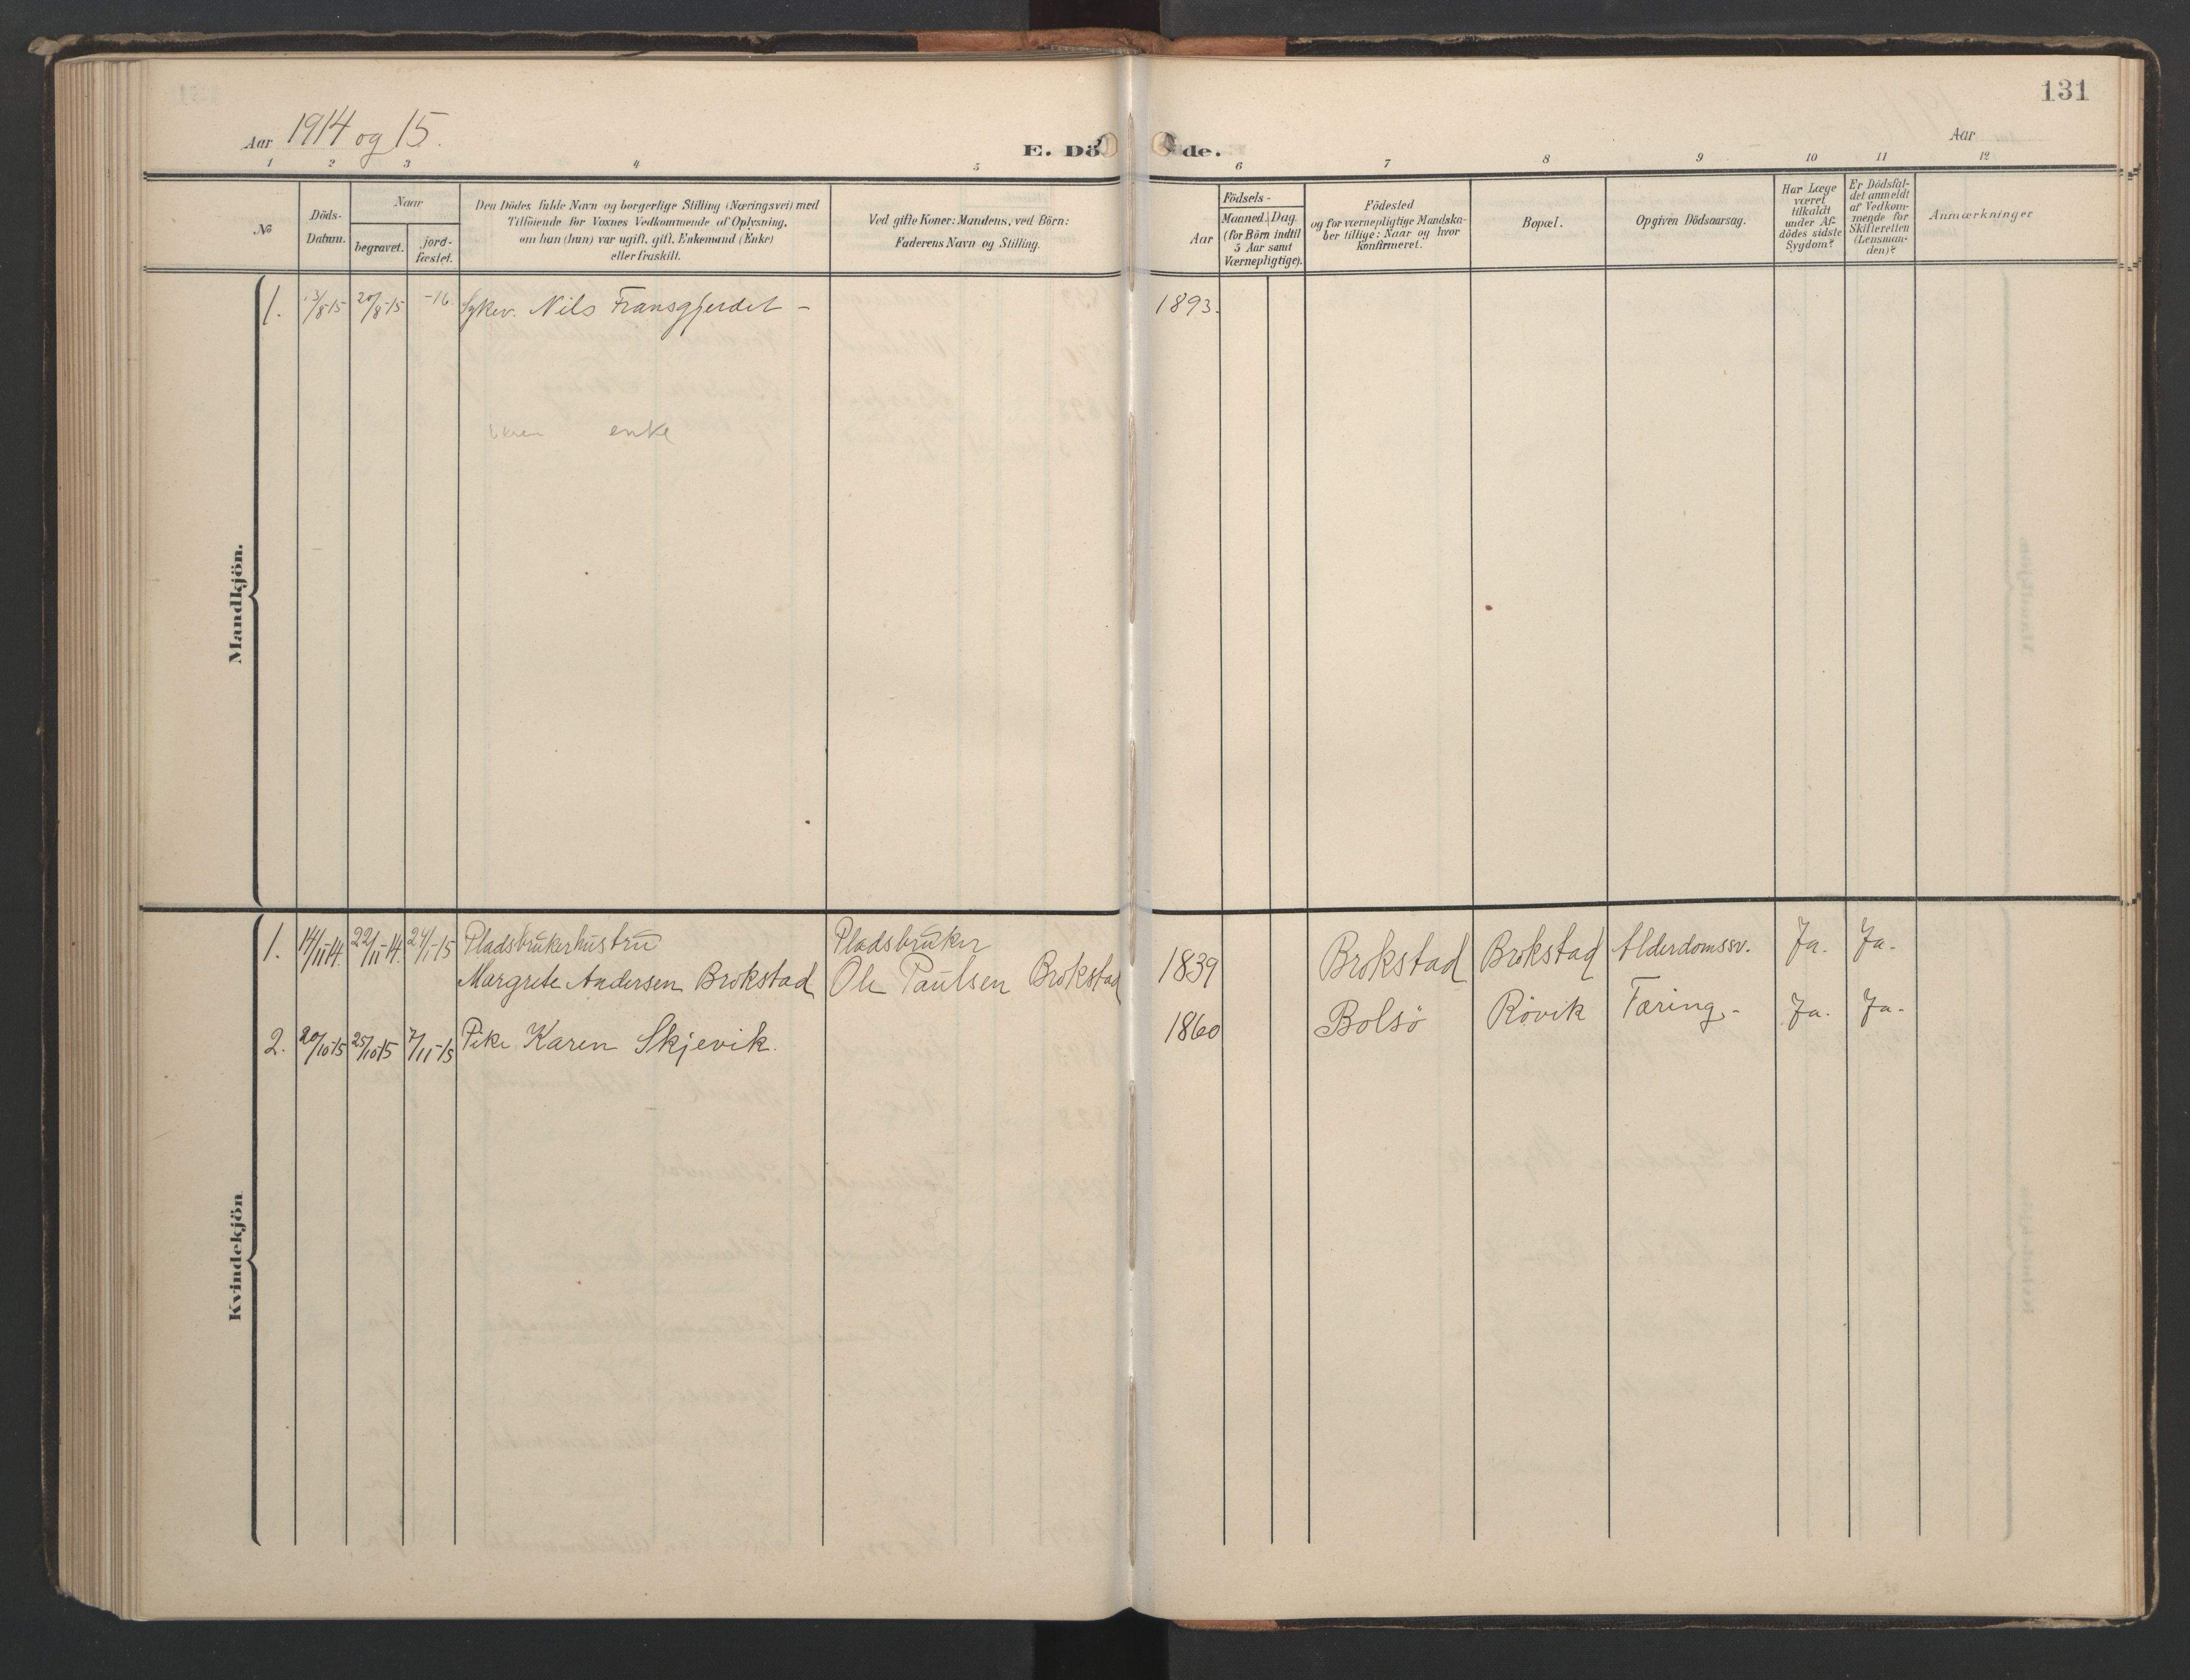 131
Aar 1914 og 15.
E. Dö de.
Aar
1 2 3 4 5 6 7 8 9 10 11 12
No
Döds-
Datum.
Naar
begravet.
jord-
fæstet.
Den Dödes fulde Navn og borgerlige Stilling (Næringsvei) med
Tilföiende for Voxnes Vedkommende af Oplysning,
om han (hun) var ugift, gift, Enkemand (Enke)
eller fraskilt.
Ved gifte Koner: Mandens, ved Börn:
Faderens Navn og Stilling.
Födsels-
Aar
Maaned. Dag.
(for Börn indtil
5 Aar samt
Værnepligtige).
Födested
og for værnepligtige Mandska-
ber tillige: Naar og hvor
konfirmeret.
Bopæl.
Opgiven Dödsaarsag.
Har Læge
været
tilkaldt
under Af-
dödes sidste
Sygdom?
Er Dödsfal-
det anmeldt
af Vedkom-
mende for
Skifteretten
(Lensman-
den)?
Anmærkninger
Mandkjön.
1. 13/8-15 20/8-15 -16. Nils Fransgjerdet - 1893.
enke
Kvindekjön
1. 14/11-14. 22/11-14. 24/1-15 Pladsbrukerhustru Pladsbruker
Margrete Andersen Brokstad Ole Paulsen Brokstad 1839 Brokstad Brokstad Alderdomssv. Ja. Ja.
2. 20/10-15 25/10-15 7/11-15 Pike Karen Skjevik. 1860 Bolsö Rövik Tæring.- Ja. Ja.